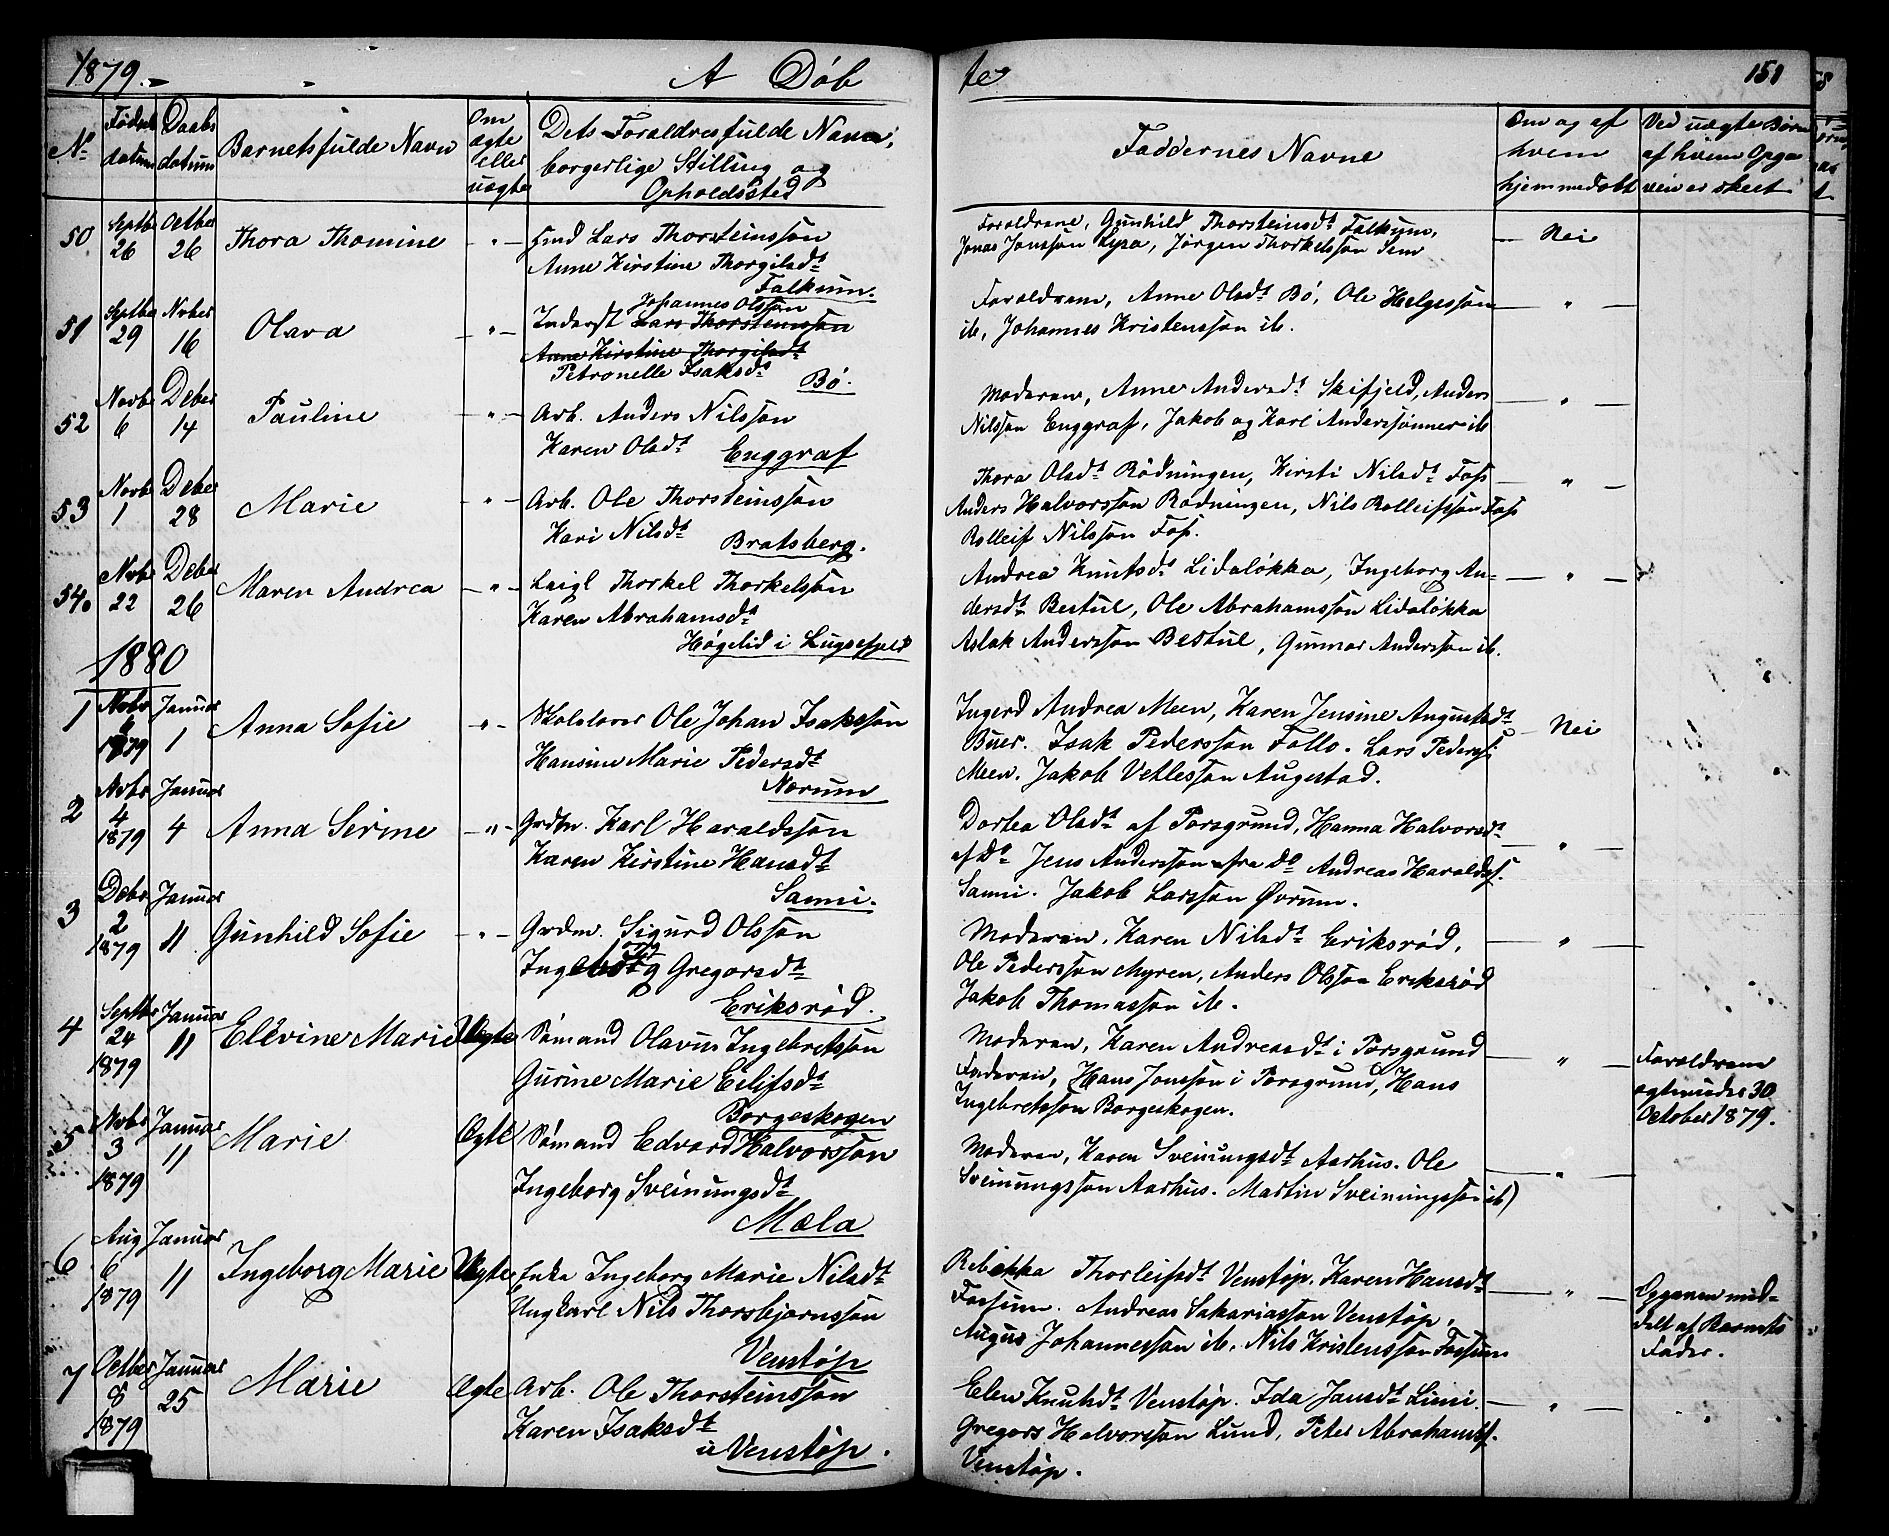 1879. A Döbte 151
No
Fødsels datum
Daabs datum
Barnets fulde Navn
Om ægte eller uægte
Dets Forældres fulde Navn, borgerlige Stilling og Opholdssted
Faddernes Navne
Om og af hvem hjemmedøbt
Ved uægte Børn af hvem Opgaven er skeet
50 Septbr 26 Octber 26 Thora Thomine - " -
Lars Thorsteinssøn
Anne Kirstine Thorgilsdt
Falkum.
Forældrene, Gunhild Thorsteinsdt Falkum,
Jonas Jonssøn Lyra, Jørgen Thorkelssøn Sem
Nei
51 Septbr 29 Novber 16 Olava " -
Johannes Olssøn
Inderst Lars Thorsteinssøn
Anne Kirstine Thorgilsdt
Petronelle Isaksdt
Bö.
Forældrene, Anne Olsdt Bö, Ole Helgessøn
ib, Johannes Kristenssøn ib.
- " -
52 Novb 6 Deber 14 Pauline - " -
Arb. Anders Nilssøn
Karen Olsdt Enggraf
Moderen, Anne Andersdt Skifjeld, Anders
Nilssøn Enggraf, Jakob og Karl Anderssønner ib
- " -
53 Novb 1 Deber 28 Marie - " -
Arb. Ole Thorsteinssøn
Kari Nilsdt
Bratsberg.
Thora Olsdt Rödningen, Kirsti Nilsdt Foss
Anders Halvorssøn Rødningen, Nils Rolleifssøn Foss
Rolleif Nilssøn Foss.
- " -
54. Novbr 22 Deber 26 Maren Andrea - " -
Leigl Thorkel Thorkelssøn
Karen Abrahamsdt
Høgelid i Luksefjeld
Andrea Knutsdt Lidaløkka, Ingeborg An-
dersdt Bestul, Ole Abrahamssøn Lidaløkka
Aslak Anderssøn Bestul, Gunnar Anderssøn ib.
- " -
1880
1 Novbr 6 1879 Januar 1 Anna Sofie " -
Skolelærer Ole Johan Isakssøn
Hansine Marie Pedersdt
Nærum
Ingerd Andrea Meen, Karen Jensine Augustsdt
Buer. Isak Pederssøn Follo. Lars Peders.
Meen. Jakob Vetlessøn Augestad.
Nei
2 Novbr 4 1879 Januar 4 Anna Serine - " -
Grdm. Karl Haraldssøn
Karen Kirstine Hansdt
Sanni.
Dortea Olsdt af Porsgrund, Hanna Halvorsdt
af Do Jens Anderssøn fra Do Andreas Haralds.
Sanni. Jakob Larssøn Övrum.
- " -
3 Debr 2 1879 Januar 11 Gunhild Sofie - " -
Grdm. Sigurd Olssøn
Ingeborg Gregorsdt
Eriksröd.
Moderen, Karen Nilsdt Eriksröd,
Ole Pederssøn Myren, Anders Olssøn Eriksrød
Jakob Thomassøn ib.
- " -
4 Septbr 24 1879 Januar 11 Elevine Marie Uægte
Sømand Olavus Ingebretssøn
Gurine Marie Eilifsdt
Borgeskogen
Moderen, Karen Andreasdt i Porsgrund
Faderen, Hans Jonssøn i Porsgrund, Hans
Ingebretssøn Borgeskogen.
- " -
Forældrene
ægteviedes 30
October 1879.
5 Novbr 3 1879 Januar 11 Marie Ægte
Sømand Edvard Halvorssøn
Ingeborg Sveinungsdt
Mæla
Moderen, Karen Sveinungsdt Aarhus. Ole
Sveinungssøn Aarhus. Martin Sveinungssøn ib)
- " -
6 Aug 6 1879 Januar 11 Ingeborg Marie Uægte
Enke Ingeborg Marie Nilsdt
Ungkarl Nils Thorbjørnssøn
Venstøp
Rebekka Thorleifsdt Venstøp. Karen Hansdt
Fossum. Andreas Sakariassøn Venstøp,
August Johannessøn ib, Nils Kristenssøn Fossum
- " -
Opgaven med-
delt af Barnets
Fader.
7 Octber 8 1879 Januar 25 Marie Ægte
Arb. Ole Thorsteinssøn
Karen Isaksdt
u Venstøp.
Elen Knutsdt Venstøp. Ida Jansdt Limi.
Gregors Halvorssøn Lund, Peter Abrahams.
Venstøp.
- " -